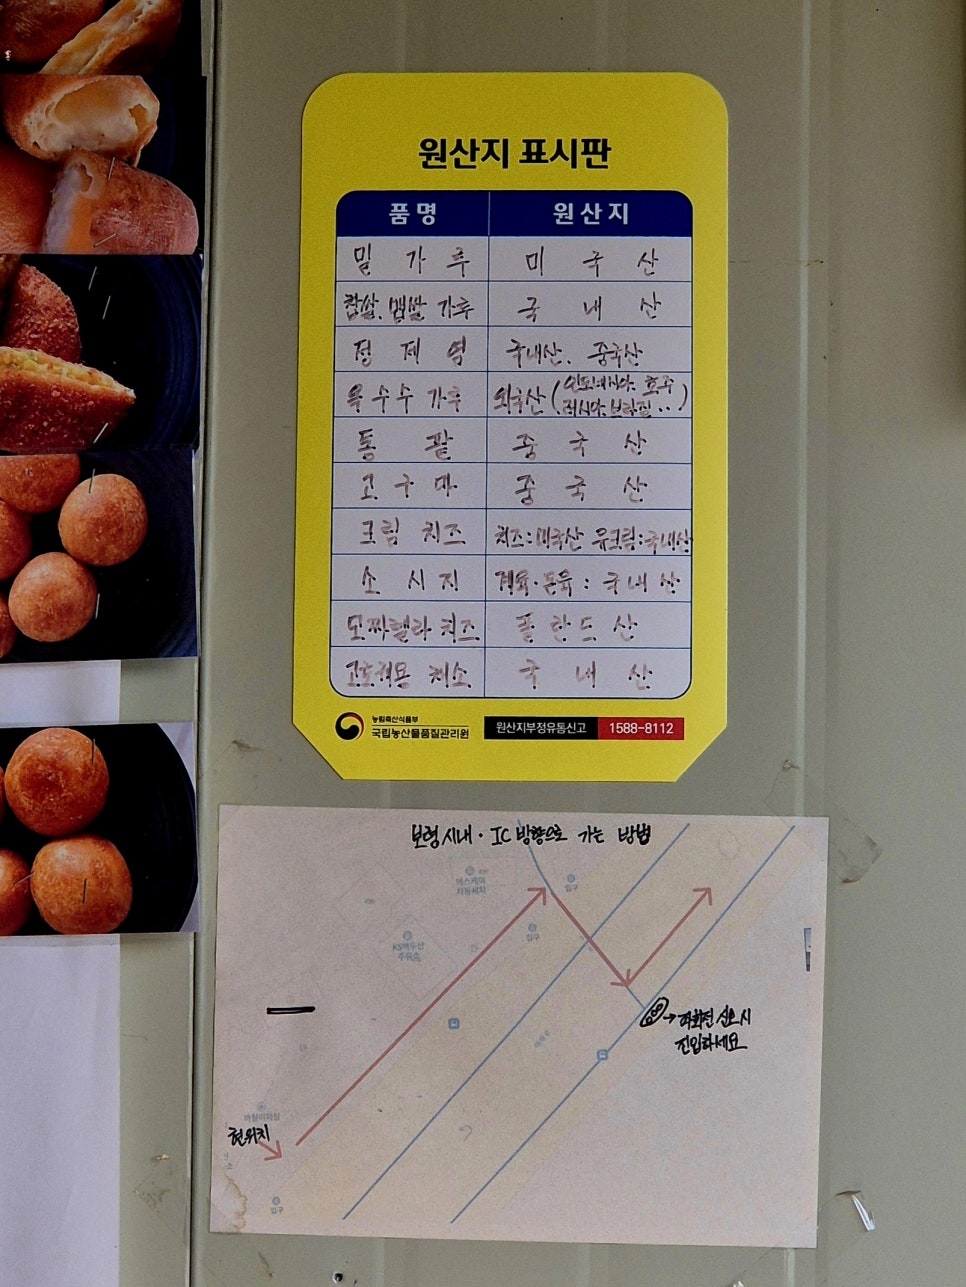 원산지 표시판
품명 원산지
밀가루 미국산
찹쌀, 맵쌀 가루 국내산
정제염 국내산, 중국산
옥수수 가루 외국산 (인도네시아, 호주
러시아, 브라질..)
통팥 중국산
고구마 중국산
크림 치즈 치즈:미국산 유크림:국내산
소시지 계육·돈육 : 국내산
모짜렐라 치즈 폴란드산
고로케용 채소 국내산
농림축산식품부
국립농산물품질관리원
원산지부정유통신고 1588-8112
보령시내·IC 방향으로 가는 방법
에스케이
자동세차
입구
입구
주유소
좌회전 신호시
진입하세요
현위치
입구